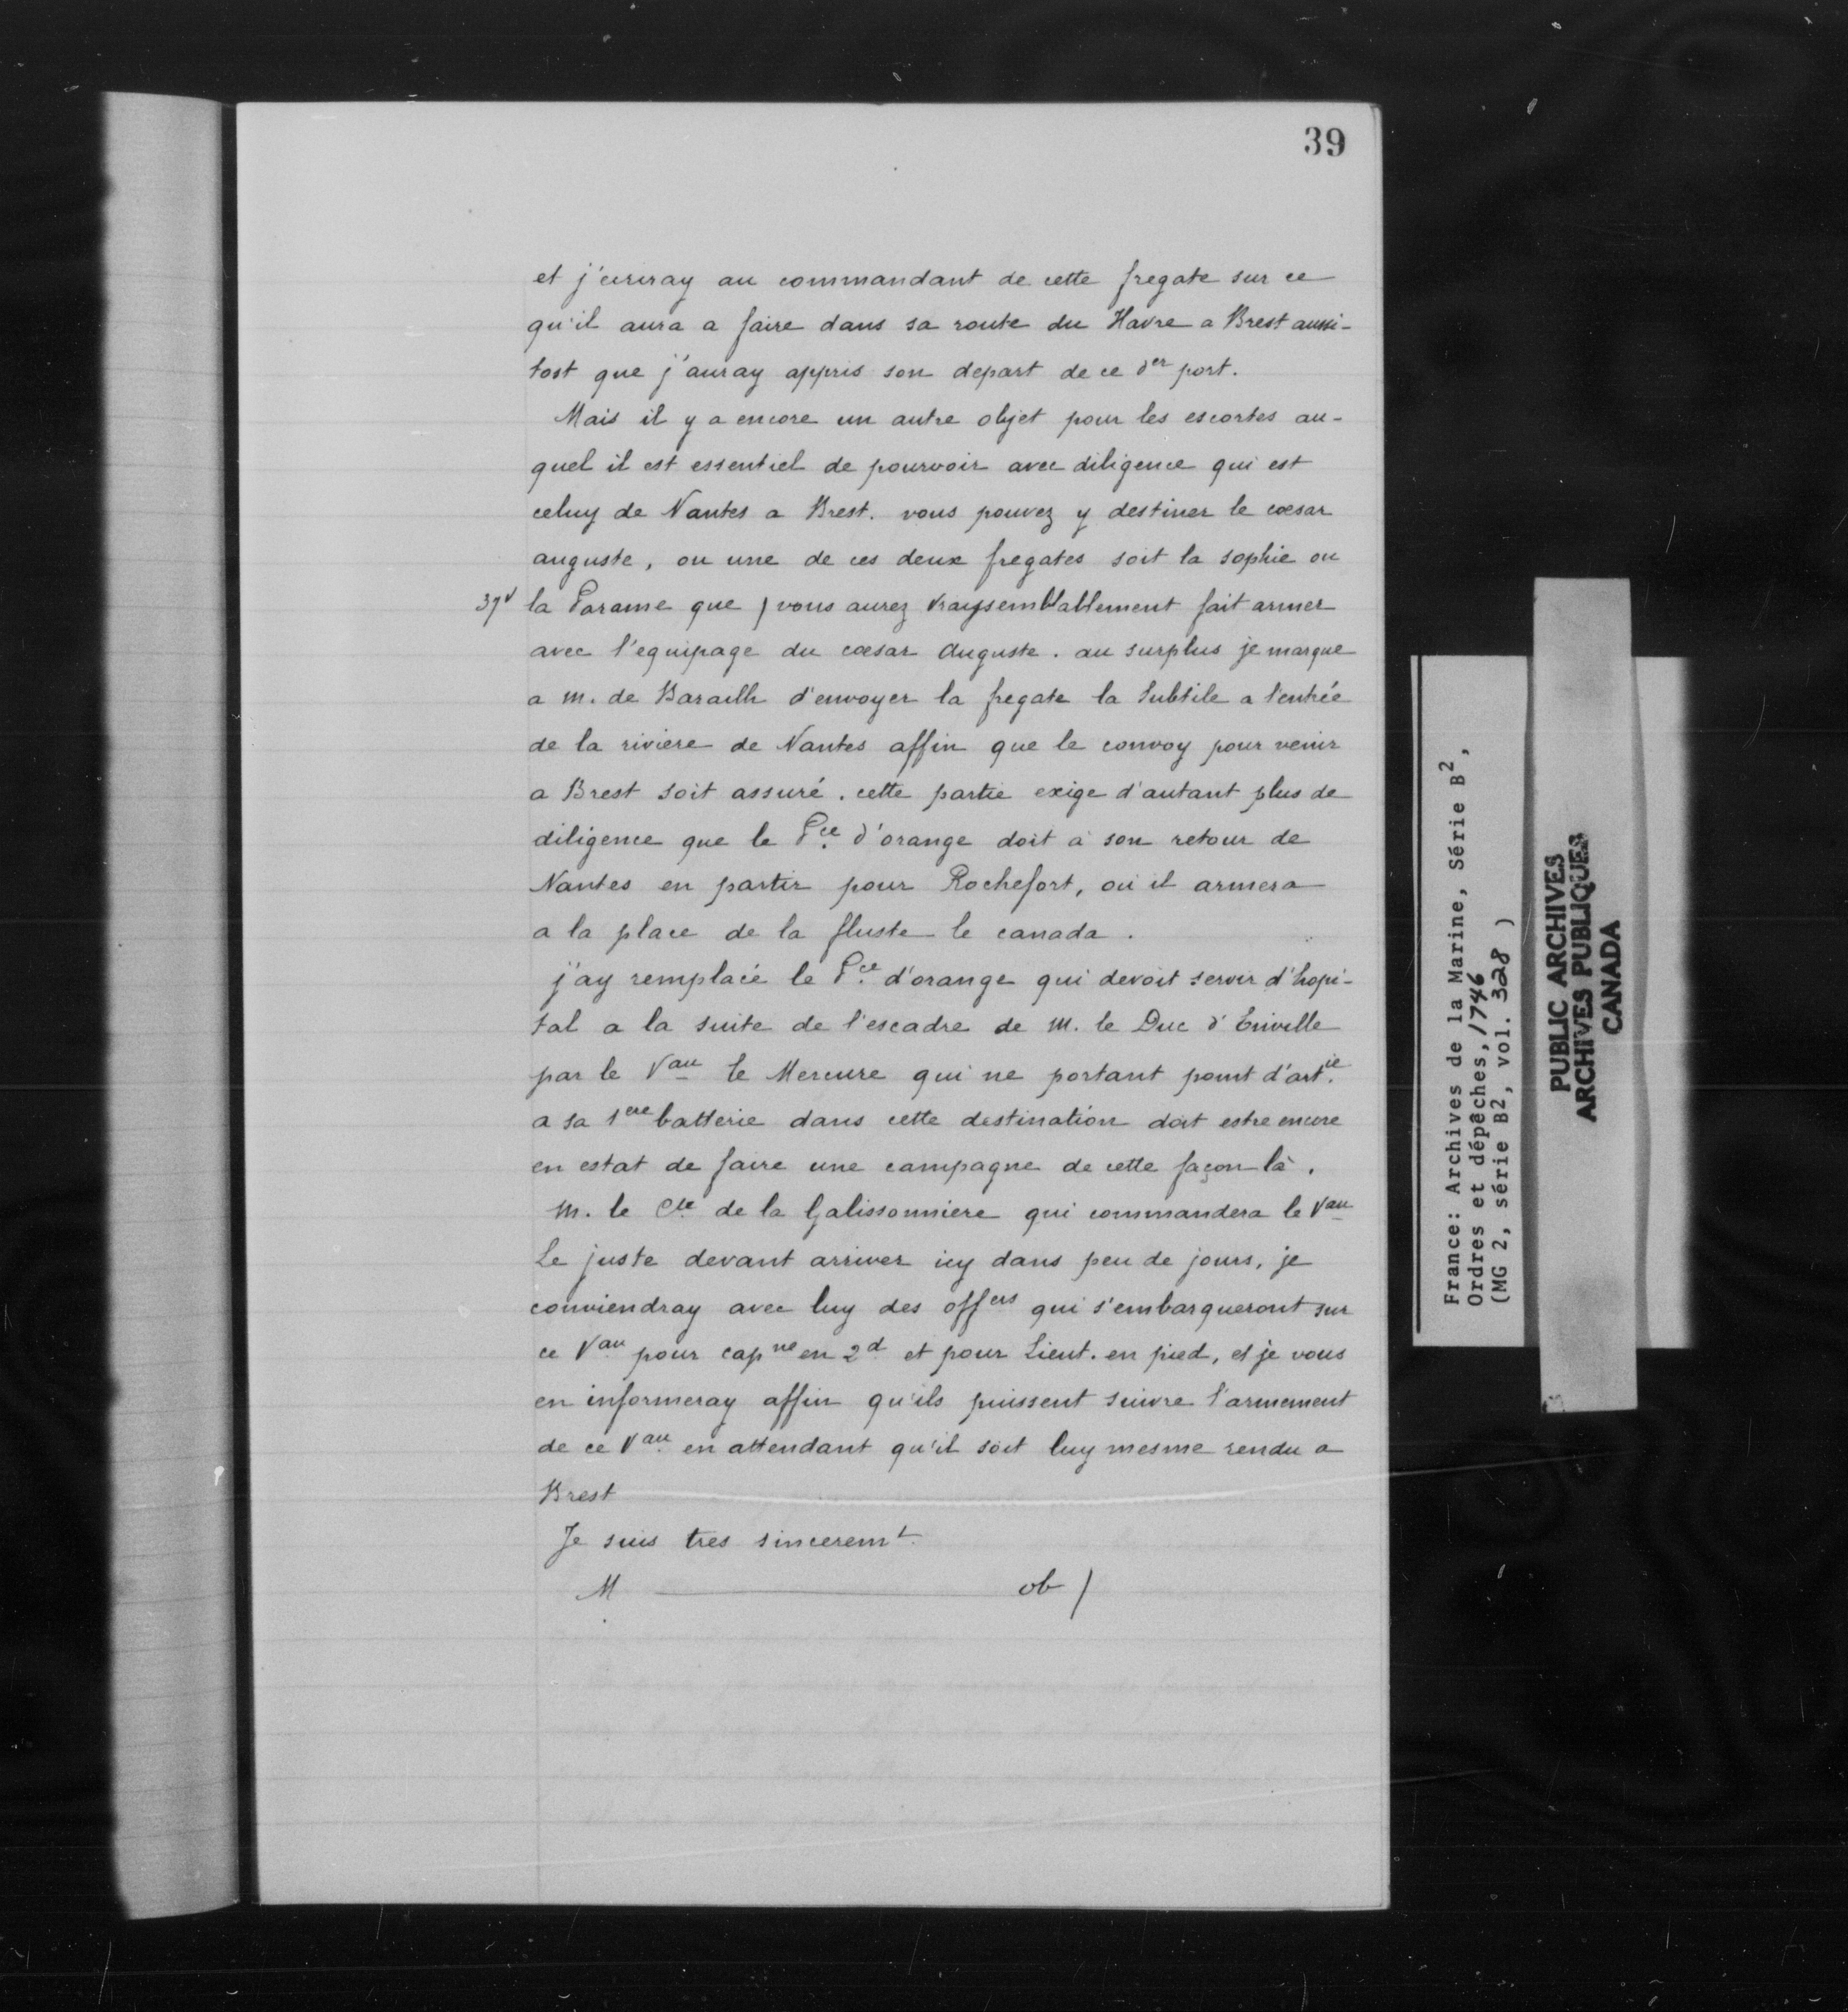 39
et j'ecriray au commandant de cette fregate sur ce
qu'il aura a faire dans sa route du Havre a Brest aussi-
tost que j'auray appris son depart de ce der port.
Mais il y a encore un autre objet pour les escortes au-
quel il est essentiel de pourvoir avec diligence qui est
celuy de Nantes a Brest. vous pouvez y destiner le cœsar
auguste, ou une de ces deux fregates soit la sophie ou
37v la Parame que / vous aurez vraysemblablement fait armer
avec l'equipage du cœsar Auguste. au surplus je marque
a m. de Barailh d'envoyer la fregate la Subtile a l'entrée
de la riviere de Nantes affin que le convoy pour venir
a Brest soit assuré. cette partie exige d'autant plus de
diligence que le Pce d'orange doit à son retour de
Nantes en partir pour Rochefort, ou il armera
a la place de la fluste le canada.
j'ay remplacé le Pce d'orange qui devoit servir d'hopi-
tal a la suite de l'escadre de M. le Duc d'Enville
par le Vau le Mercure qui ne portant point d'artie
a sa 1ere batterie dans cette destination doit estre encore
en estat de faire une campagne de cette façon là.
M. le Cte de la Galissonniere qui commandera le Vau
Le juste devant arriver icy dans peu de jours, je
conviendray avec luy des offers qui s'embarqueront sur
ce Vau pour capne en 2d et pour Lieut. en pied, et je vous
en informeray affin qu'ils puissent suivre l'armement
de ce Vau en attendant qu'il soit luy mesme rendu a
Brest
Je suis tres sinceremt
M ob /
France: Archives de la Marine, Série B2,
Ordres et dépêches, 1746
(MG 2, série B2, vol. 328 )
PUBLIC ARCHIVES
ARCHIVES PUBLIQUES
CANADA